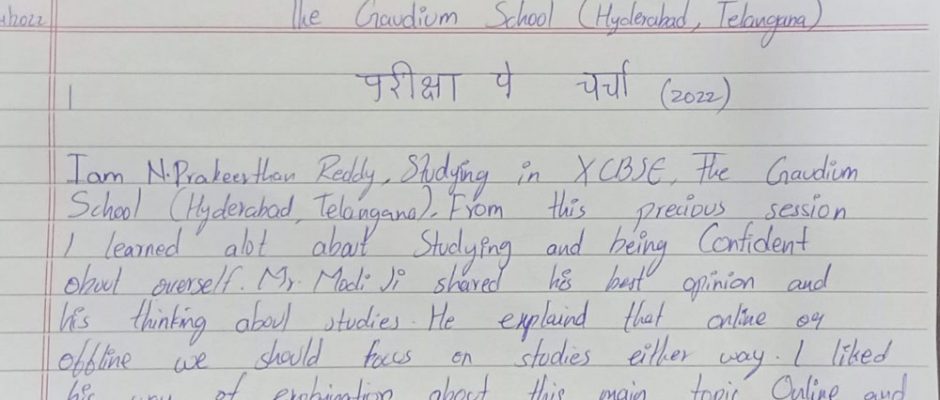 2022 The Gaudium School (Hyderabad, Telangana)
परीक्षा पे चर्चा (2022)
I am N.Prakeerthan Reddy, Studying in X CBSE, The Gaudium
School (Hyderabad, Telangana). From this precious session
I learned alot about Studying and being Confident
about overself. Mr. Modi Ji shared his best opinion and
his thinking about studies. He explaind that online or
offline we should focus on studies either way. I liked
his way of about this main topic Online and